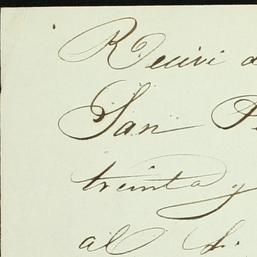 Recivi d
San P
treinta y
al S.